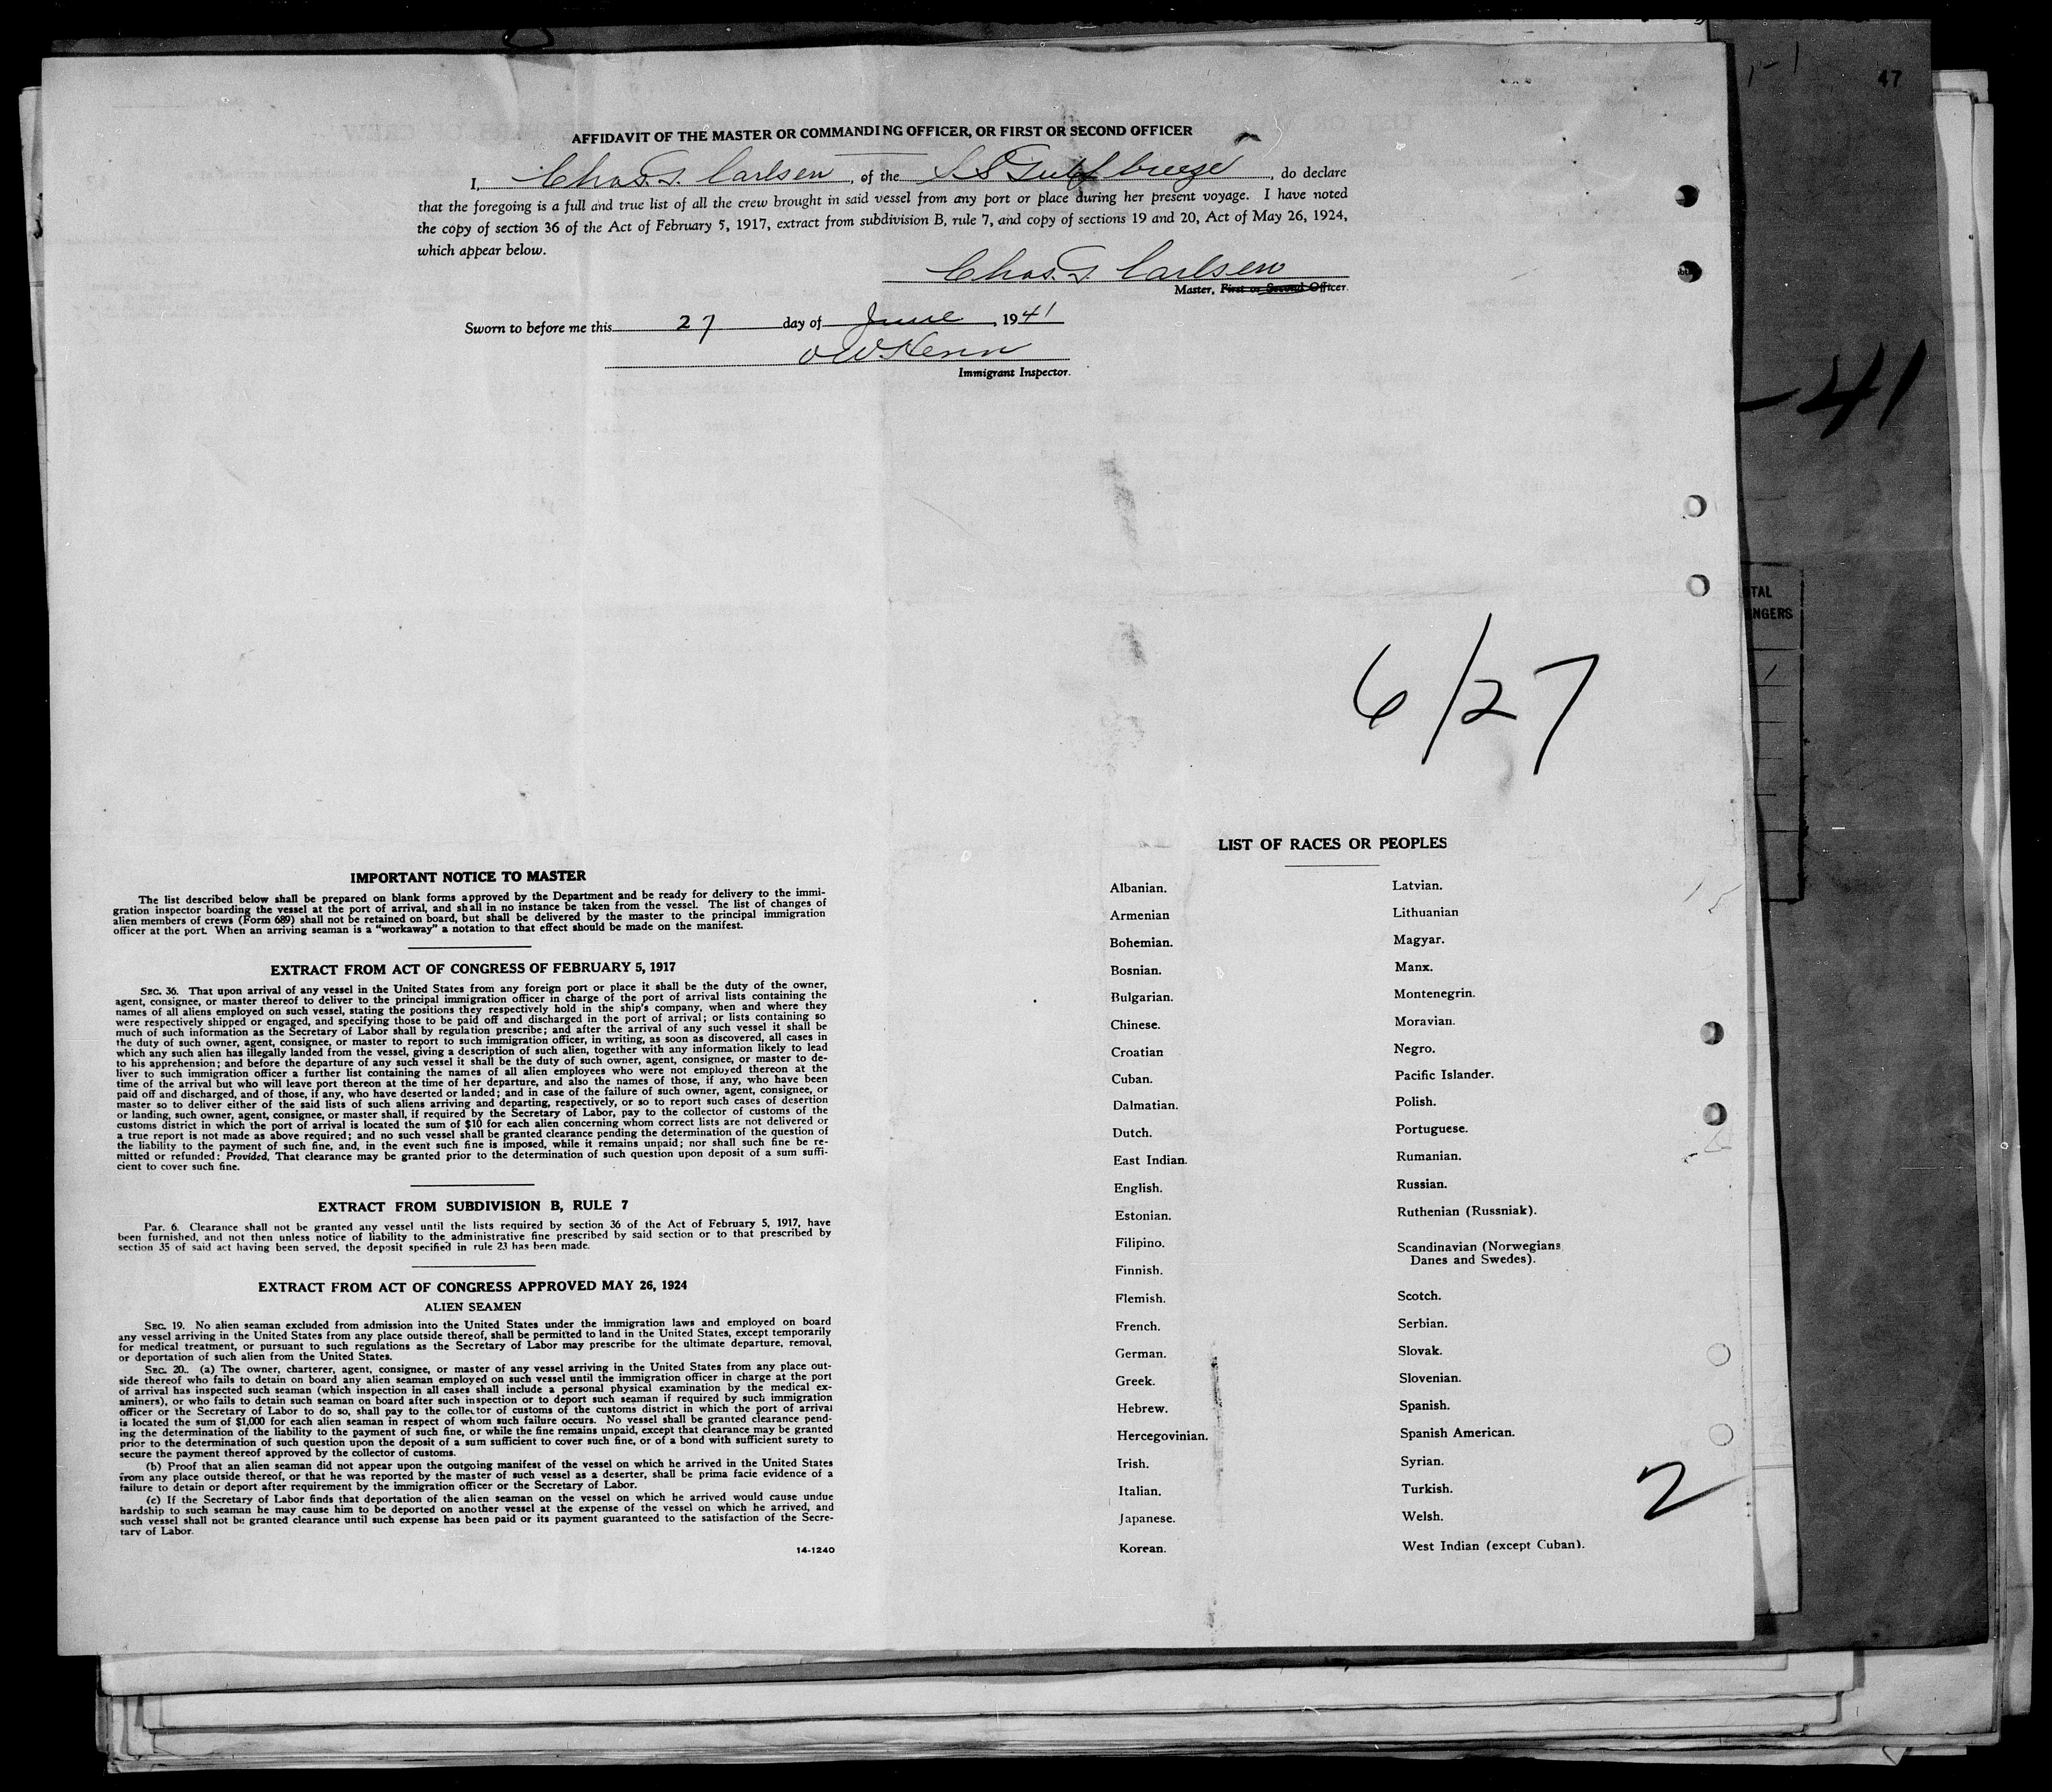 47
AFFIDAVIT OF THE MASTER OR COMMANDING OFFICER, OR FIRST OR SECOND OFFICER
I, Chas. T. Carlsen, of the SS Gulfbreeze, do declare
that the foregoing is a full and true list of all the crew brought in said vessel from any port or place during her present voyage. I have noted
the copy of section 36 of the Act of February 5, 1917, extract from subdivision B, rule 7, and copy of sections 19 and 20, Act of May 26, 1924,
which appear below.
Chas. T. Carlsen
Master, First or Second Officer.
Sworn to before me this 27 day of June, 1941
Immigrant Inspector.
-41
TAL
NGERS
6/27
IMPORTANT NOTICE TO MASTER
The list described below shall be prepared on blank forms approved by the Department and be ready for delivery to the immi-
gration inspector boarding the vessel at the port of arrival, and shall in no instance be taken from the vessel. The list of changes of
alien members of crews (Form 689) shall not be retained on board, but shall be delivered by the master to the principal immigration
officer at the port. When an arriving seaman is a "workaway" a notation to that effect should be made on the manifest.
EXTRACT FROM ACT OF CONGRESS OF FEBRUARY 5, 1917
SEC. 36. That upon arrival of any vessel in the United States from any foreign port or place it shall be the duty of the owner,
agent, consignee, or master thereof to deliver to the principal immigration officer in charge of the port of arrival lists containing the
names of all aliens employed on such vessel, stating the positions they respectively hold in the ship's company, when and where they
were respectively shipped or engaged, and specifying those to be paid off and discharged in the port of arrival; or lists containing so
much of such information as the Secretary of Labor shall by regulation prescribe; and after the arrival of any such vessel it shall be
the duty of such owner, agent, consignee, or master to report to such immigration officer, in writing, as soon as discovered, all cases in
which any such alien has illegally landed from the vessel, giving a description of such alien, together with any information likely to lead
to his apprehension; and before the departure of any such vessel it shall be the duty of such owner, agent, consignee, or master to de-
liver to such immigration officer a further list containing the names of all alien employees who were not employed thereon at the
time of the arrival but who will leave port thereon at the time of her departure, and also the names of those, if any, who have been
paid off and discharged, and of those, if any, who have deserted or landed; and in case of the failure of such owner, agent, consignee, or
master so to deliver either of the said lists of such aliens arriving and departing, respectively, or so to report such cases of desertion
or landing, such owner, agent, consignee, or master shall, if required by the Secretary of Labor, pay to the collector of customs of the
customs district in which the port of arrival is located the sum of $10 for each alien concerning whom correct lists are not delivered or
a true report is not made as above required; and no such vessel shall be granted clearance pending the determination of the question of
the liability to the payment of such fine, and, in the event such fine is imposed, while it remains unpaid; nor shall such fine be re-
mitted or refunded: Provided, That clearance may be granted prior to the determination of such question upon deposit of a sum suffi-
cient to cover such fine.
EXTRACT FROM SUBDIVISION B, RULE 7
Par. 6. Clearance shall not be granted any vessel until the lists required by section 36 of the Act of February 5, 1917, have
been furnished, and not then unless notice of liability to the administrative fine prescribed by said section or to that prescribed by
section 35 of said act having been served, the deposit specified in rule 23 has been made.
EXTRACT FROM ACT OF CONGRESS APPROVED MAY 26, 1924
ALIEN SEAMEN
SEC. 19. No alien seaman excluded from admission into the United States under the immigration laws and employed on board
any vessel arriving in the United States from any place outside thereof, shall be permitted to land in the United States, except temporarily
for medical treatment, or pursuant to such regulations as the Secretary of Labor may prescribe for the ultimate departure, removal,
or deportation of such alien from the United States.
SEC. 20. (a) The owner, charterer, agent, consignee, or master of any vessel arriving in the United States from any place out-
side thereof who fails to detain on board any alien seaman employed on such vessel until the immigration officer in charge at the port
of arrival has inspected such seaman (which inspection in all cases shall include a personal physical examination by the medical ex-
aminers), or who fails to detain such seaman on board after such inspection or to deport such seaman if required by such immigration
officer or the Secretary of Labor to do so, shall pay to the collector of customs of the customs district in which the port of arrival
is located the sum of $1,000 for each alien seaman in respect of whom such failure occurs. No vessel shall be granted clearance pend-
ing the determination of the liability to the payment of such fine, or while the fine remains unpaid, except that clearance may be granted
prior to the determination of such question upon the deposit of a sum sufficient to cover such fine, or of a bond with sufficient surety to
secure the payment thereof approved by the collector of customs.
(b) Proof that an alien seaman did not appear upon the outgoing manifest of the vessel on which he arrived in the United States
from any place outside thereof, or that he was reported by the master of such vessel as a deserter, shall be prima facie evidence of a
failure to detain or deport after requirement by the immigration officer or the Secretary of Labor.
(c) If the Secretary of Labor finds that deportation of the alien seaman on the vessel on which he arrived would cause undue
hardship to such seaman he may cause him to be deported on another vessel at the expense of the vessel on which he arrived, and
such vessel shall not be granted clearance until such expense has been paid or its payment guaranteed to the satisfaction of the Secre-
tary of Labor.
14-1240
LIST OF RACES OR PEOPLES
Albanian.
Armenian
Bohemian.
Bosnian.
Bulgarian.
Chinese.
Croatian
Cuban.
Dalmatian.
Dutch.
East Indian.
English.
Estonian.
Filipino.
Finnish.
Flemish.
French.
German.
Greek.
Hebrew.
Hercegovinian.
Irish.
Italian.
Japanese.
Korean.
Latvian.
Lithuanian
Magyar.
Manx.
Montenegrin.
Moravian.
Negro.
Pacific Islander.
Polish.
Portuguese.
Rumanian.
Russian.
Ruthenian (Russniak).
Scandinavian (Norwegians
Danes and Swedes).
Scotch.
Serbian.
Slovak.
Slovenian.
Spanish.
Spanish American.
Syrian.
Turkish.
Welsh.
West Indian (except Cuban).
2